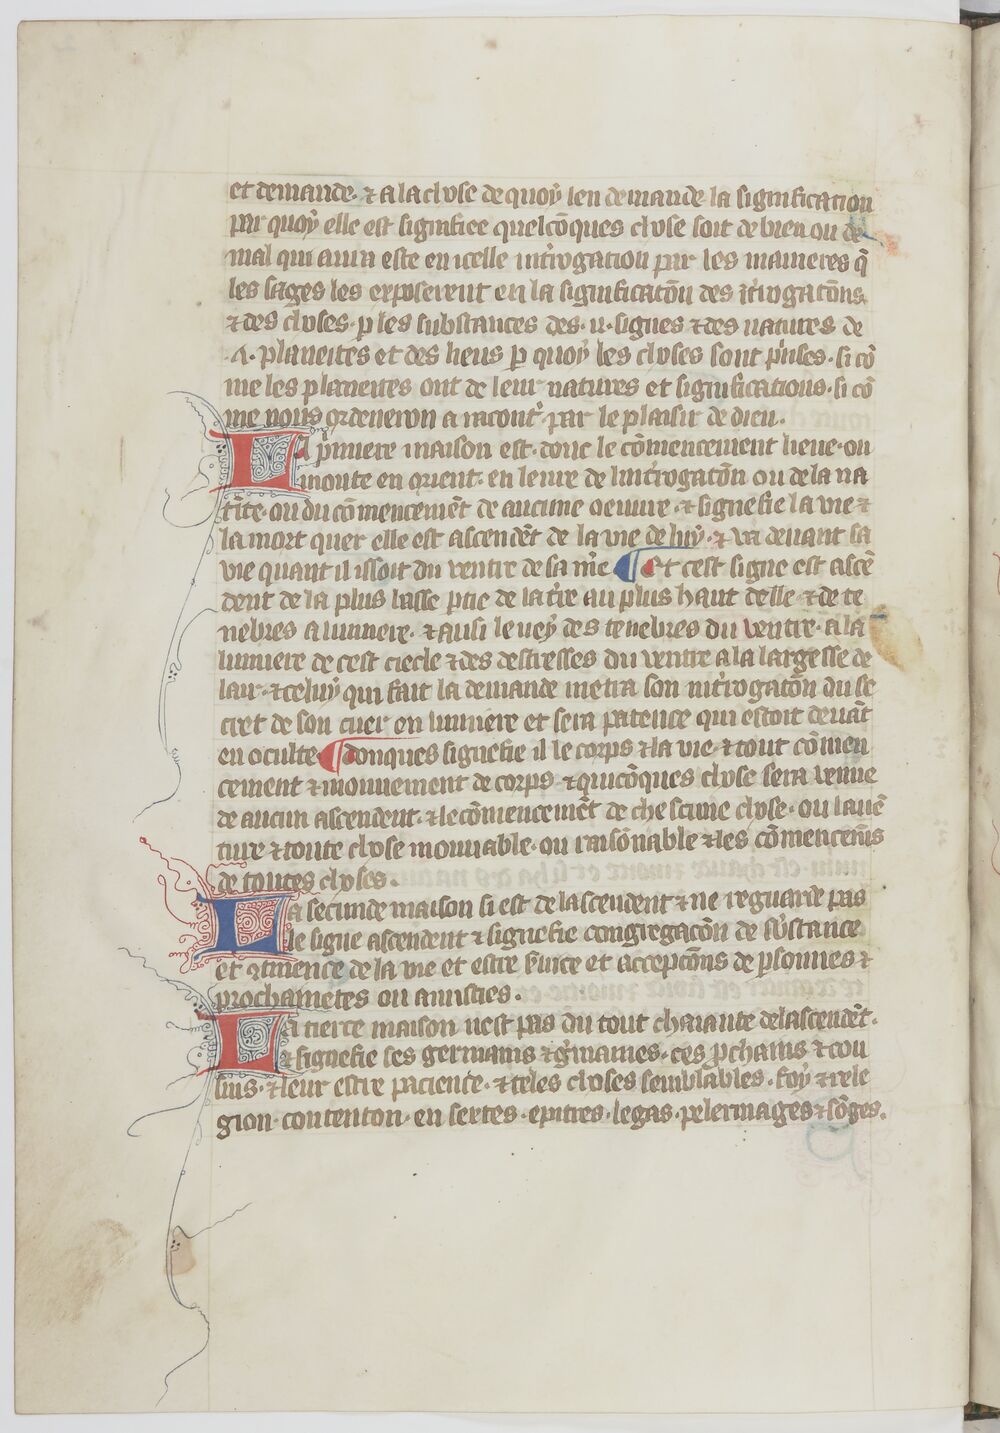 et demande. ⁊ a la chose de quoy len demande la signification
par quoy elle est signifiee quelcōques chose soit de bien ou de
mal qui aura este en icelle int̾rogation par les manieres q̄
les sages les exposerent en la significatōn des īt̾rogatōns
⁊ des choses. p̱ les substances des .ii. signes ⁊ des natures de
.λ. planetes et des lieus p̱ quoy les choses sont p̾nses. si cō
me les planetes ont de leur natures et significations. si cō
me nous ordeneron a racont̾. par le plaisir de dieu.
La p̾miere maison est. donc le cōmencement lieue. ou
monte en orient. en leure de lint̾rogatōn ou de la na
tīte. ou du cōmencemēt de aucune oeuure. ⁊ signefie la vie ⁊
la mort quer elle est ascendēt de la vie de luy. ⁊ va deuant sa
vie quant il issoit du ventre de sa m̄e ¶ Et cest signe est ascē
dent de la plus basse p̱tie de la t̾re au plus haut delle ⁊ de te
nebres a lumiere. ⁊ ausi le vey des tenebres du ventre. a la
lumiere de cest ciecle ⁊ des destresses du ventre a la largesse de
lair. ⁊ celuy qui fait la demande metra son int̾rogatōn du se
cret de son cuer en lumiere et sera patence qui estoit deuāt
en oculte ¶ Donques signefie il le corps ⁊ la vie. ⁊ tout cōmen
cement ⁊ mouuement de corps. ⁊ quicōques chose sera venue
de aucun ascendent. ⁊ le cōmencemēt de chescune chose. ou lauē
ture ⁊ toute chose mouuable. ou raisōnable ⁊ les cōmencem̄s
de toutes choses.
La secunde maison si est de lascendent ⁊ ne reguarde pas
le signe ascendent ⁊ signefie congregacōn de sb̄stance
et ꝯmence de la vie et estre s̾uice et acceptōns de p̱sonnes ⁊
prochainetes ou amisties.
La tierce maison nest pas du tout cheiante de lascendēt.
⁊ signefie ses germains ⁊ g̾maines. ces p̱chains ⁊ cou
sins. ⁊ leur estre paciente. ⁊ teles choses semblables. foy ⁊ rele
gion. contenton. en sertes. epitres. legas. pelerinages ⁊ sōges.